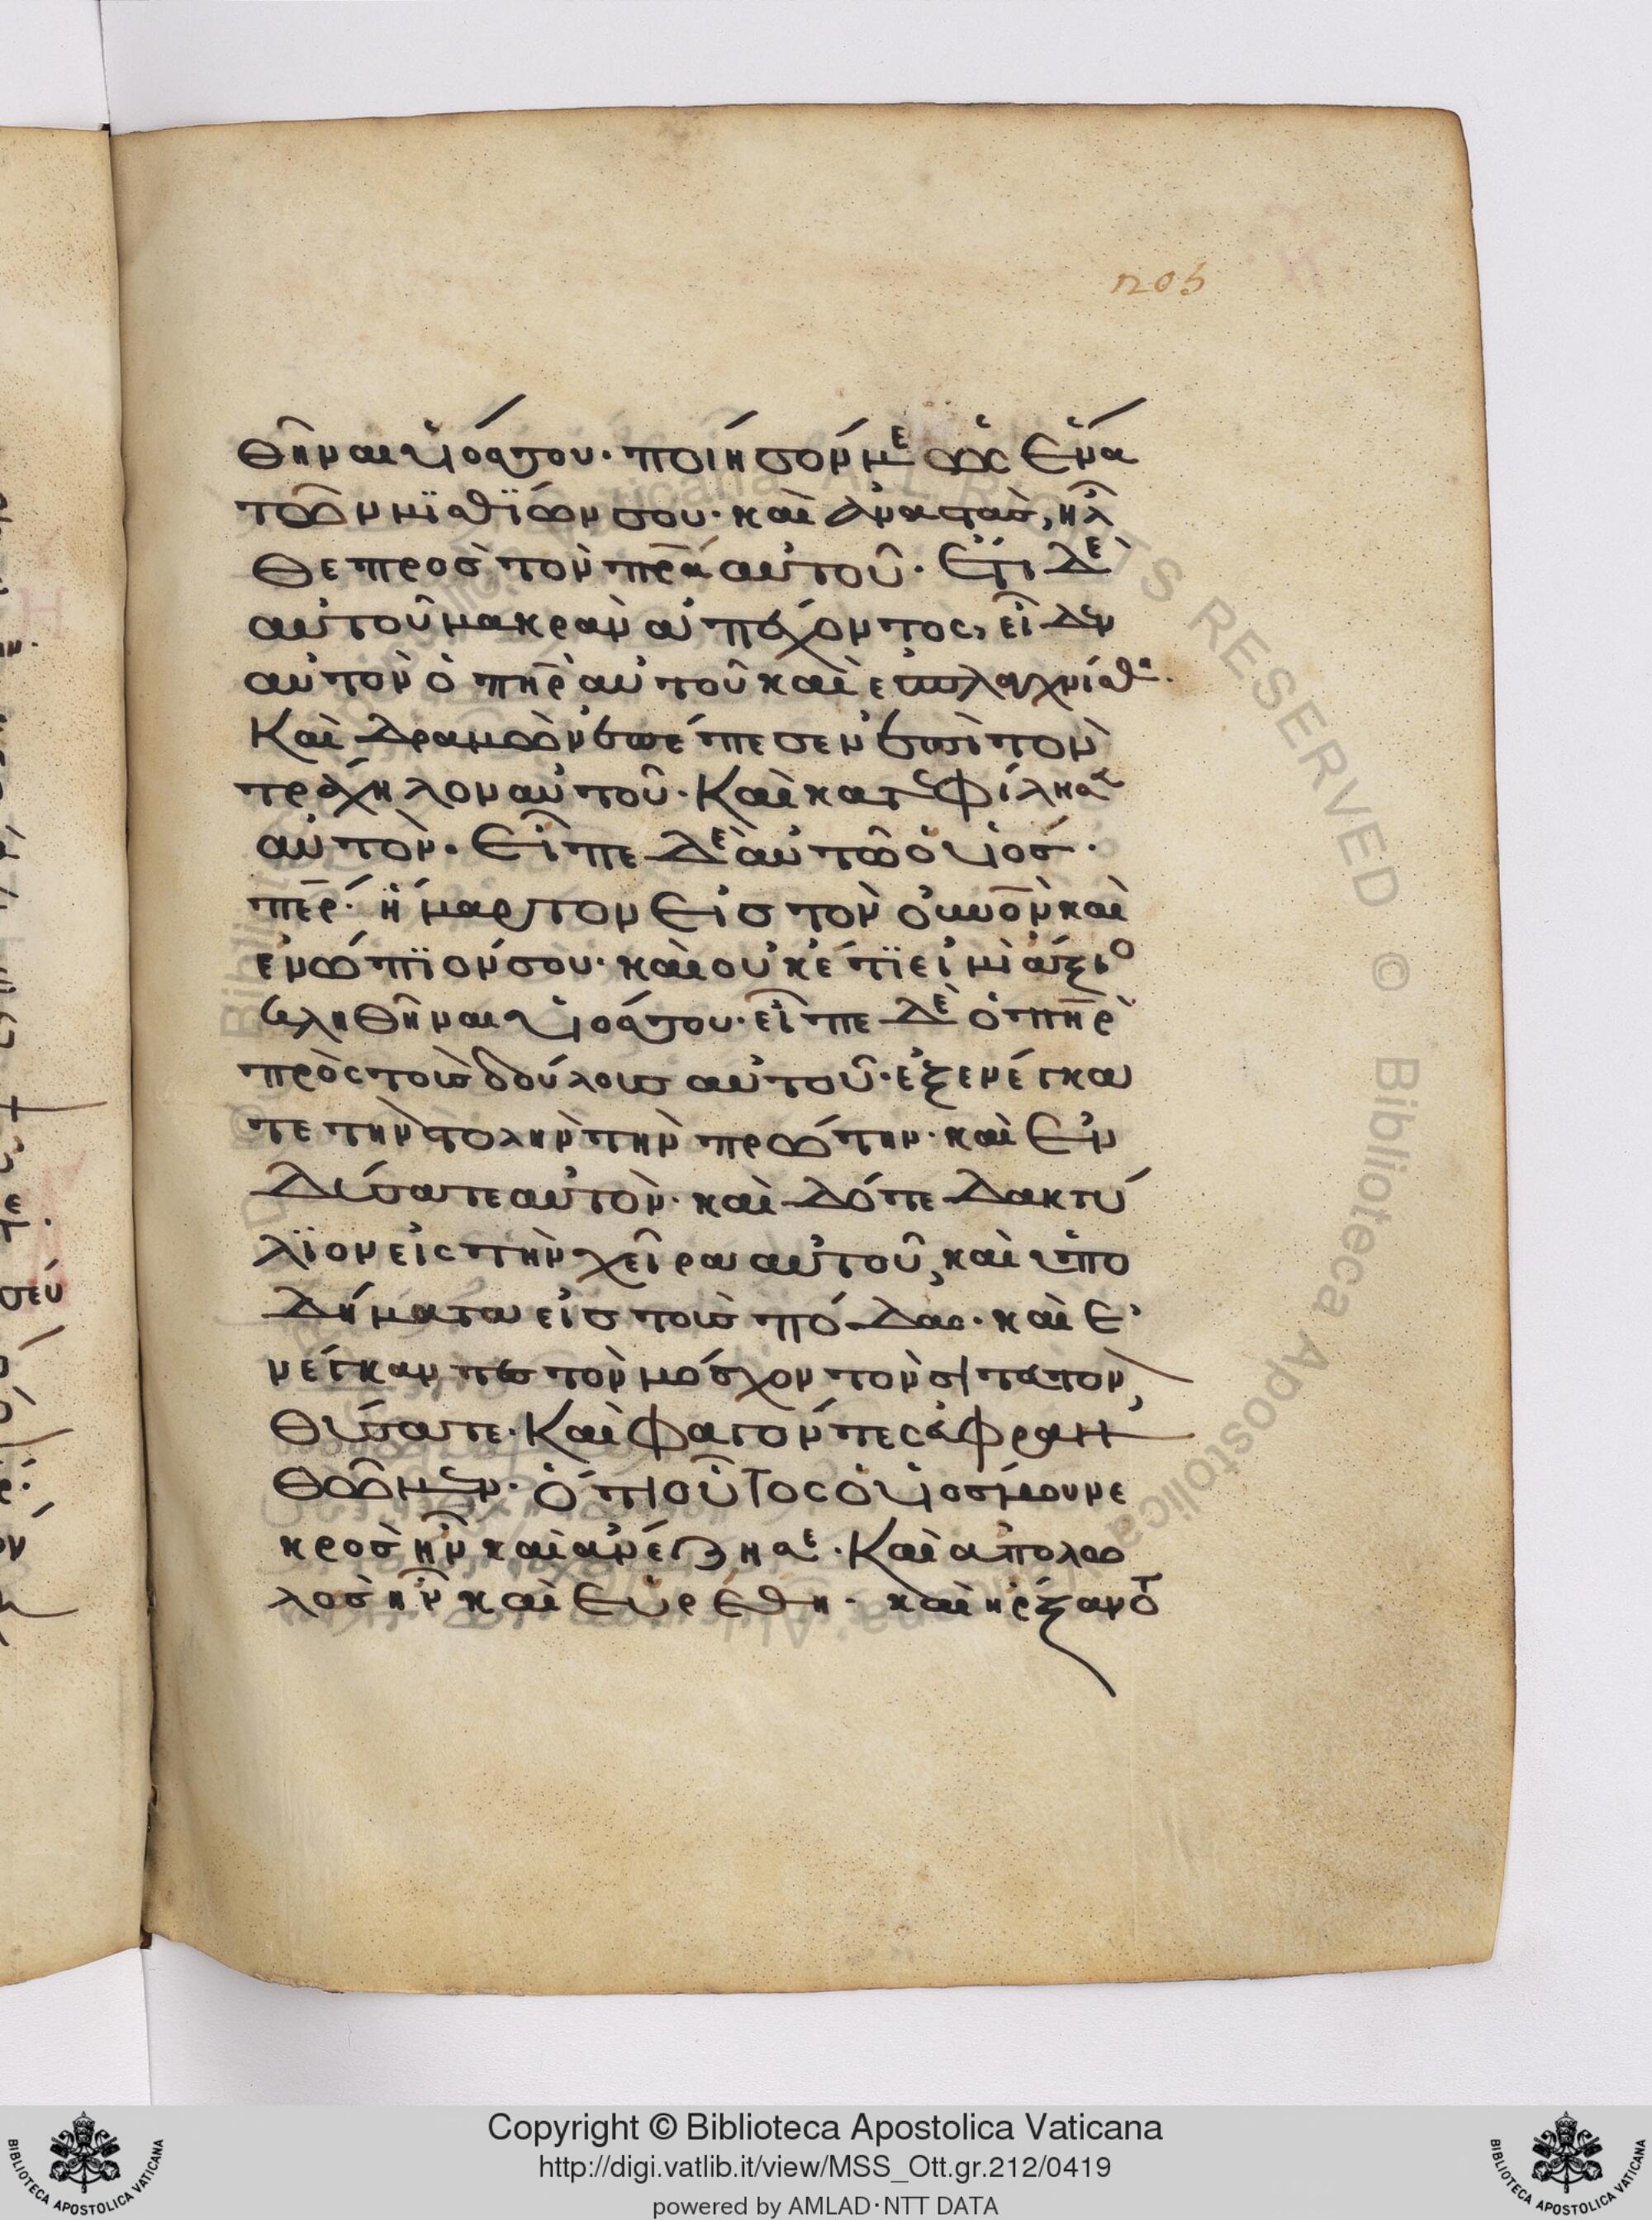 205
θῆναι υἱός σου· ποίησόν με ὡς ἕνα
τῶν μισθίων σου· καὶ ἀναστὰς, ἦλ
θε πρὸς τὸν πρ̅α αὐτοῦ. Ἔτι δὲ
αὐτοῦ μακρὰν ἀπέχοντος, εἶδεν
αὐτὸν ὁ πη̅ρ αὐτοῦ καὶ ἐσπλαγχνίσθη.
Καὶ δραμὼν ἐπέπεσεν ἐπὶ τὸν
τράχηλον αὐτοῦ. Καὶ κατεφίλησεν
αὐτὸν. Εἶπε δὲ αὐτῶ ὁ υἱός·
πε̅ρ· ἥμαρτον εἰς τὸν οὐνο̅ν καὶ
ἐνώπιόν σου· καὶ οὐκέτι εἰμὶ ἄξιο
κληθῆναι υἱός σου· εἶπε δὲ ὁ πη̅ρ
πρὸς τοὺς δούλους αὐτοῦ· ἐξενέγκα
τε τὴν στολὴν τὴν πρώτην· καὶ ἐν
δύσατε αὐτὸν· καὶ δότε δακτύ
λιον εἰς τὴν χεῖρα αὐτοῦ, καὶ ὑπο
δήματα εἰς τοὺς πόδας· καὶ ἐ
νέγκαντες τὸν μόσχον τὸν σιτευτὸν,
θύσατε. Καὶ φαγόντες εὐφραν
θῶμεν· ὅτι οὗτος ὁ υἱός μου νε
κρὸς ἦν καὶ ἀνέζησε. Καὶ ἀπολω
λὸς ἦν καὶ εὑρέθη· καὶ ἤρξαντο
Copyright © Biblioteca Apostolica Vaticana
http://digi.vatlib.it/view/MSS_Ott.gr.212/0419
powered by AMLAD·NTT DATA